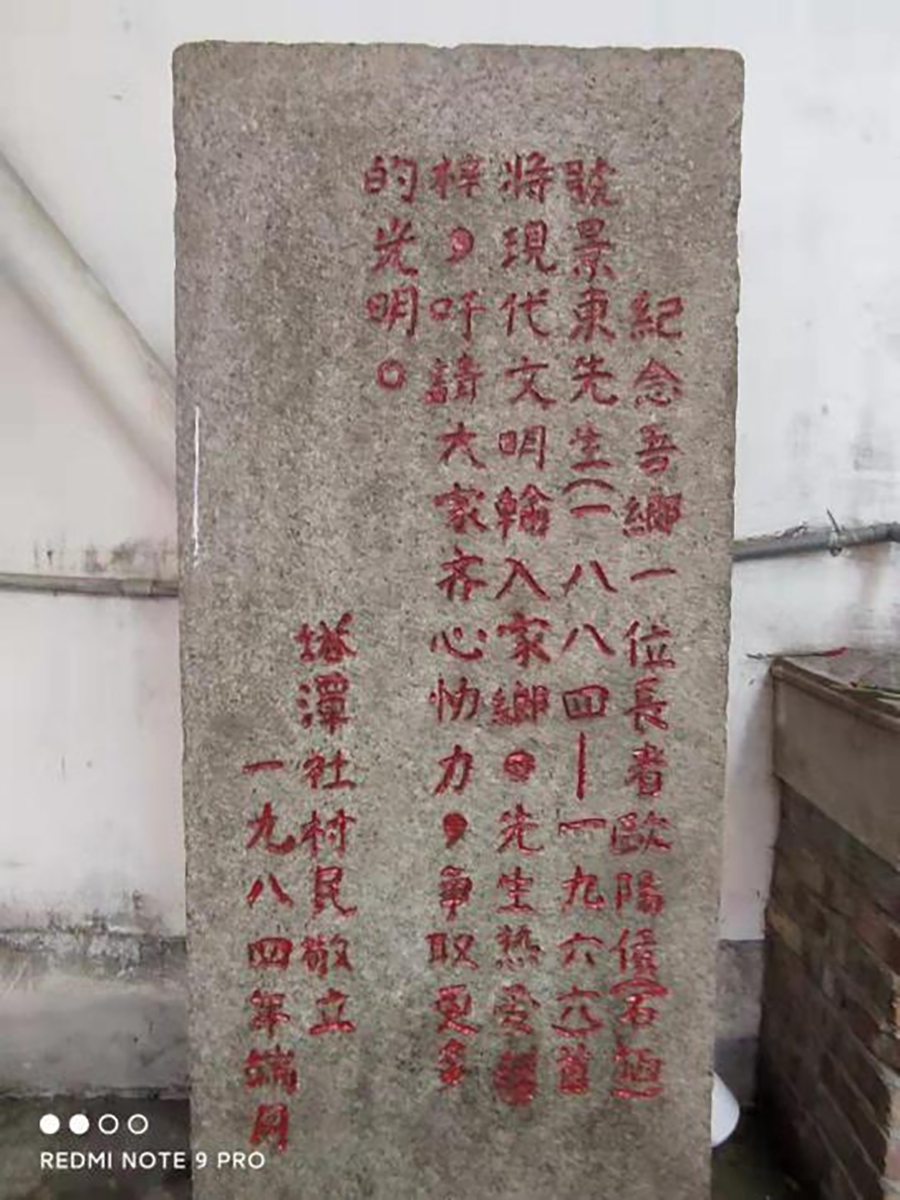 紀念吾鄉一位長者歐陽僙(石極)
號景東先生(一八八四—一九六六)首
將現代文明輸入家鄉。先生热爱桑
梓,吁請大家齐心协力,爭取更多
的光明。
塔潭社村民敬立
一九八四年端月
REDMI NOTE 9 PRO